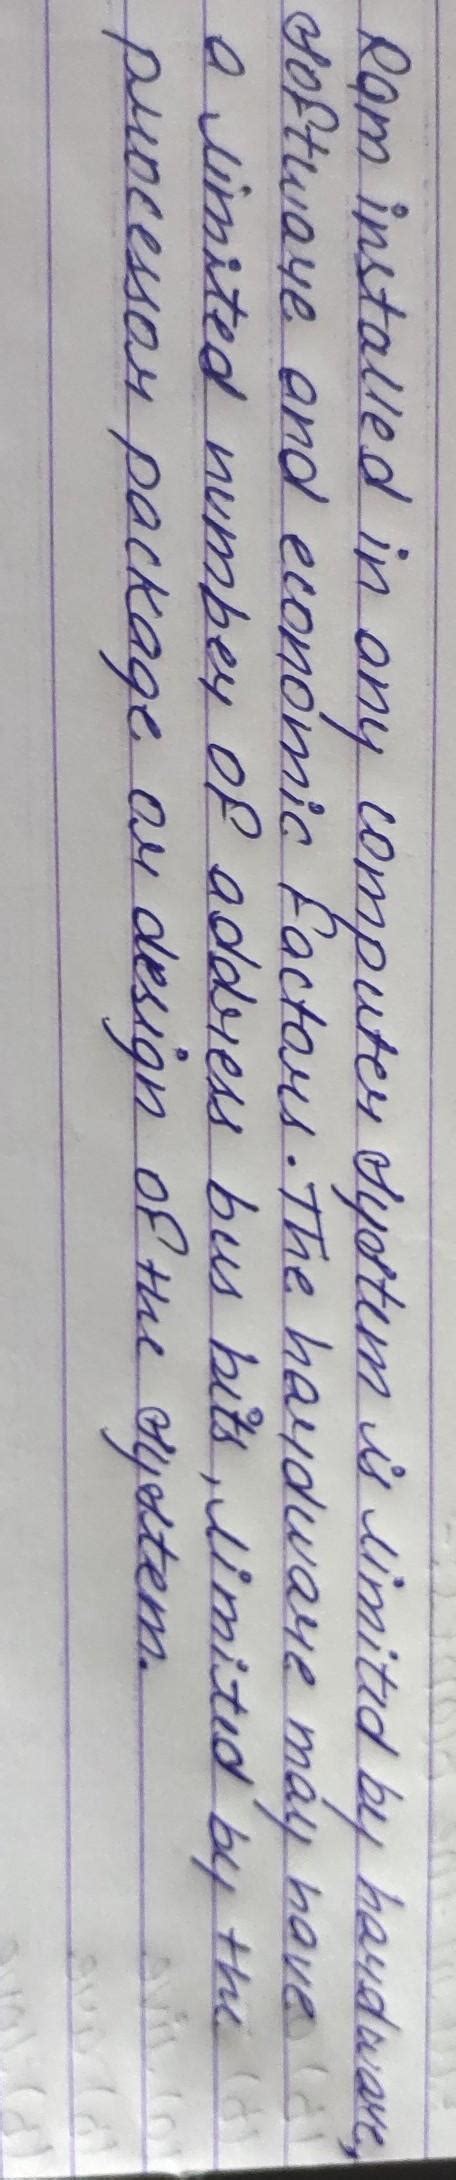 Ram installed in any computer system is limited by hardware,
software and economic factors. The hardware may have
a limited number of address bus bits, limited by the
processor package or design of the system.